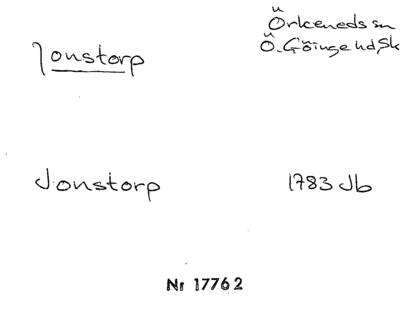 Jonstorp
Örkeneds sn
Ö. Göinge hd, Sk
Jonstorp 1783 Jb
Nr 17762